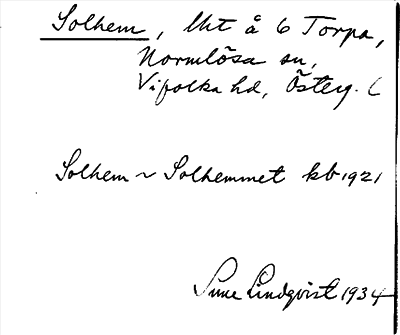 Solhem, lht å 6 Torpa,
Normlösa sn,
Vifolka hd, Österg. L
Solhem ~ Solhemmet kb 1921
Sune Lindqvist 1934